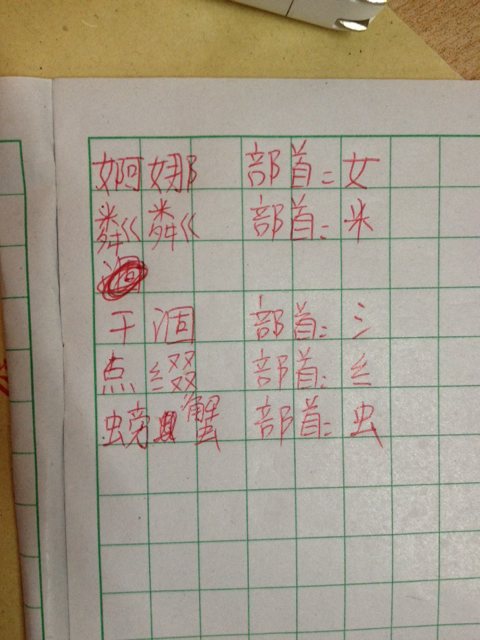 婀娜 部首：女
粼粼 部首：米
干涸 部首：氵
点缀 部首：纟
螃蟹 部首：虫